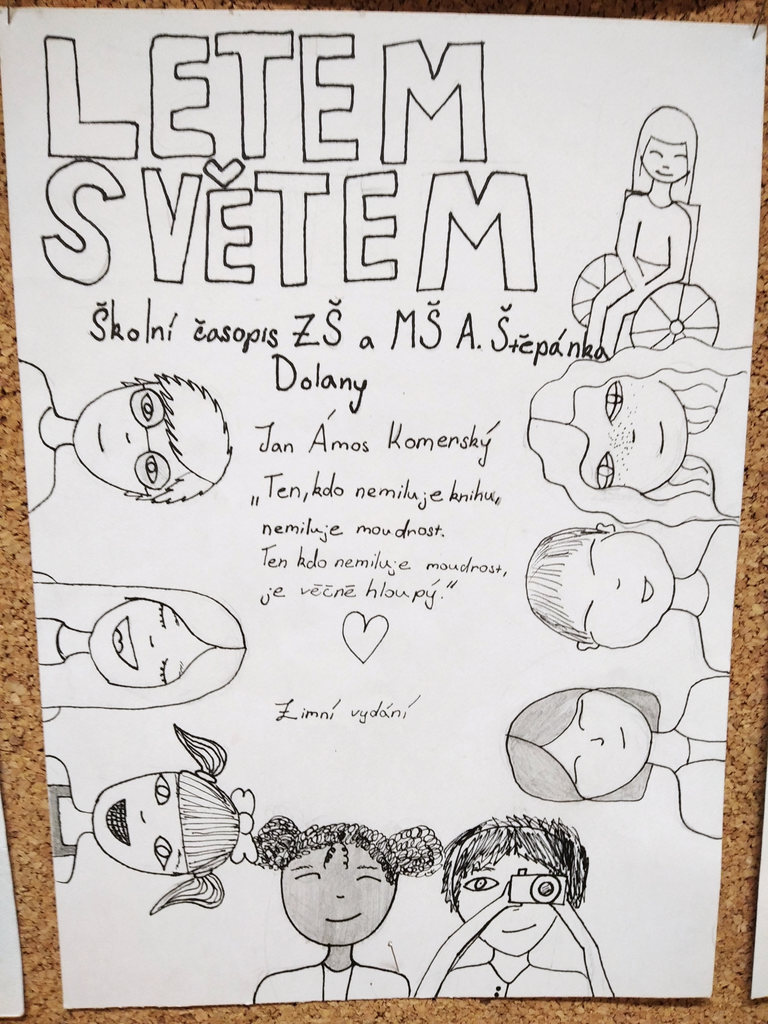 LETEM
SVĚTEM
Školní časopis ZŠ a MŠ A. Štěpánka
Dolany
Jan Ámos Komenský
„Ten, kdo nemiluje knihu,
nemiluje moudrost.
Ten kdo nemiluje moudrost,
je věčně hloupý.“
Zimní vydání